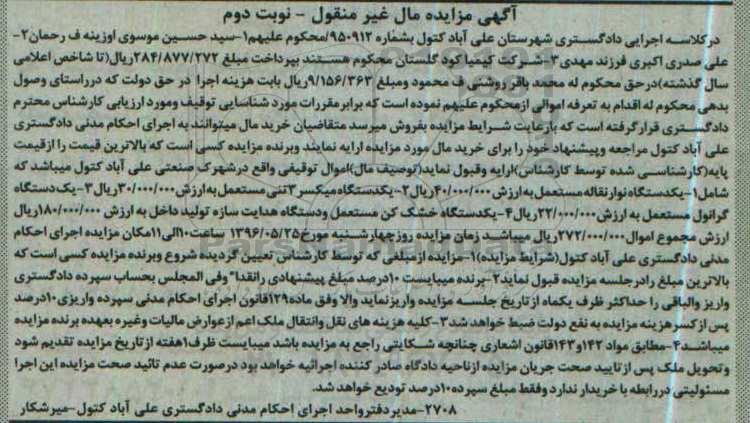 آگهی مزایده مال غیر منقول - نوبت دوم
درکلاسه اجرایی دادگستری شهرستان علی آباد کتول بشماره ۹۵۰۹۱۲/محکوم علیهم۱-سید حسین موسوی اوزینه ف رحمان۲-
علی صدری اکبری فرزند مهدی ۳-شرکت کیمیا کود گلستان محکوم هستند بپرداخت مبلغ ۲۸۴/۸۷۷/۲۷۲ریال(تا شاخص اعلامی
سال گذشته)درحق محکوم له محمد باقر روشنی ف محمود ومبلغ ۹/۱۵۶/۳۶۳ریال بابت هزینه اجرا در حق دولت که درراستای وصول
بدهی محکوم له اقدام به تعرفه اموالی ازمحکوم علیهم نموده است که برابر مقررات مورد شناسایی توقیف ومورد ارزیابی کارشناس محترم
دادگستری قرارگرفته است که بارعایت شرایط مزایده بفروش میرسد متقاضیان خرید مال میتوانند به اجرای احکام مدنی دادگستری
علی آباد کتول مراجعه وپیشنهاد خود را برای خرید مال مورد مزایده ارایه نمایند وبرنده مزایده کسی است که بالاترین قیمت را ازقیمت
پایه(کارشناسی شده توسط کارشناس)ارایه وقبول نماید(توصیف مال)اموال توقیفی واقع درشهرک صنعتی علی آباد کتول میباشد که
شامل۱-یکدستگاه نوار نقاله مستعمل به ارزش ۴۰/۰۰۰/۰۰۰ریال۲-یکدستگاه میکسر ۳تنی مستعمل به ارزش ۳۰/۰۰۰/۰۰۰ریال۳-یک دستگاه
گرانول مستعمل به ارزش ۲۲/۰۰۰/۰۰۰ریال۴-یکدستگاه خشک کن مستعمل ودستگاه هدایت سازه تولید داخل به ارزش ۱۸۰/۰۰۰/۰۰۰ریال
ارزش مجموع اموال ۲۷۲/۰۰۰/۰۰۰ریال میباشد زمان مزایده روز چهارشنبه مورخ ۱۳۹۶/۰۵/۲۵ ساعت۱۰الی۱۱مکان مزایده اجرای احکام
مدنی دادگستری علی آباد کتول(شرایط مزایده)۱-مزایده از مبلغی که توسط کارشناس تعیین گردیده شروع وبرنده مزایده کسی است که
بالاترین مبلغ رادر جلسه مزایده قبول نماید۲-برنده میبایست ۱۰درصد مبلغ پیشنهادی رانقدا" وفی المجلس بحساب سپرده دادگستری
واریز والباقی را حداکثر ظرف یکماه از تاریخ جلسه مزایده واریزنماید والا وفق ماده۱۲۹قانون اجرای احکام مدنی سپرده واریزی ۱۰درصد
پس از کسر هزینه مزایده به نفع دولت ضبط خواهد شد۳-کلیه هزینه های نقل وانتقال ملک اعم از عوارض مالیات وغیره بعهده برنده مزایده
میباشد۴-مطابق مواد ۱۴۲و۱۴۳قانون اشعاری چنانچه شکایتی راجع به مزایده باشد میبایست ظرف۱هفته از تاریخ مزایده تقدیم شود
وتحویل ملک پس از تایید صحت جریان مزایده ازناحیه دادگاه صادر کننده اجرائیه خواهد بود درصورت عدم تائید صحت مزایده این اجرا
مسئولیتی دررابطه با خریدار ندارد وفقط مبلغ سپرده ۱۰درصد تودیع خواهد شد.
۲۷۰۸-مدیر دفتر واحد اجرای احکام مدنی دادگستری علی آباد کتول-میرشکار